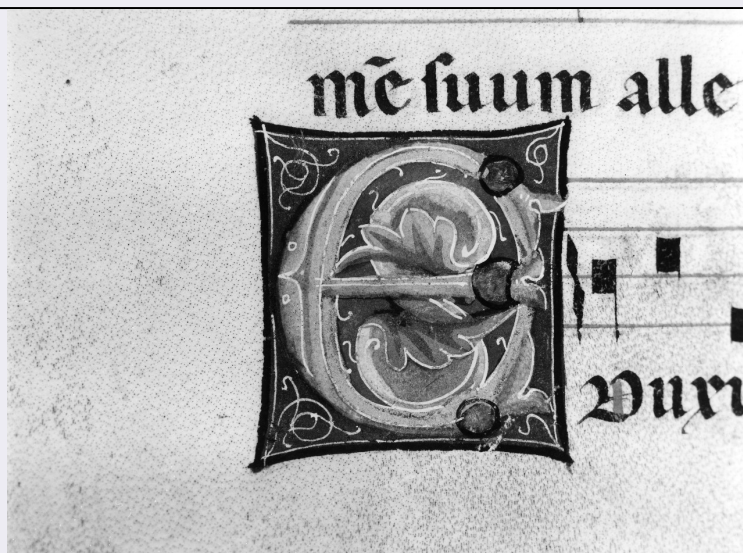 mē suum alle
E
Duxi